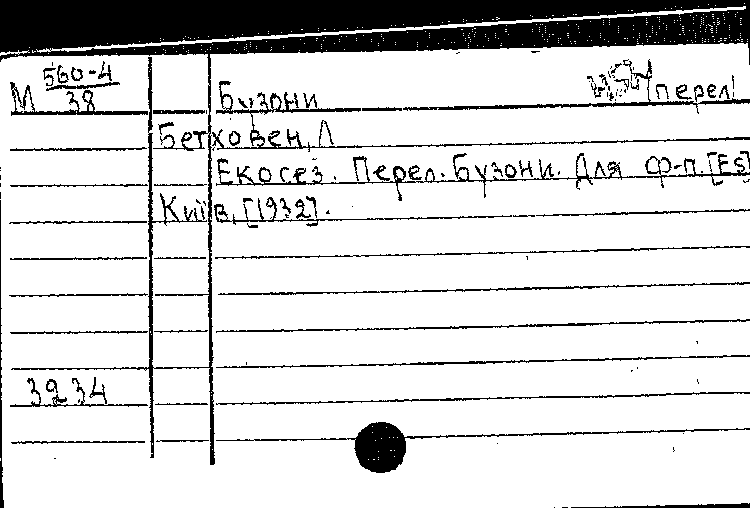 М 560-4
38
Бузони
перел!
Бетховен, Л
Екосез. Перел. Бузони. Для ф-п. [Es]
Київ, [1932].
3234